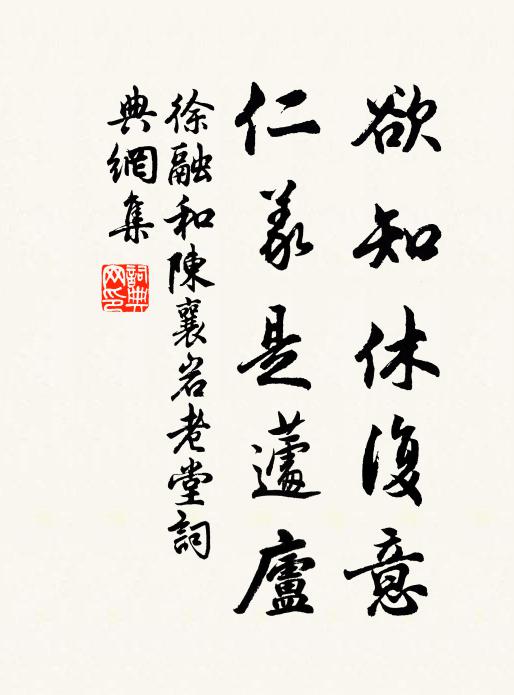 欲知休復意
仁義是蘧廬
徐融和陳襄岩老堂詞
典網集
詞典
网印